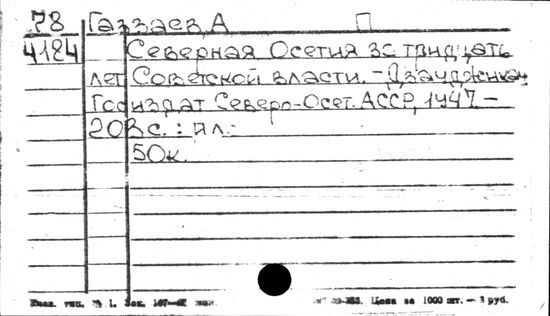 78 Газзаев, А П
4184 Северная Осетия за тридцать
лет Советской власти. - Дзауджикау
Госиздат Северо-Осет. АССР, 1947 -
203 с. : ил.
50к.
тип. № 1. Зак. Цена за 1000 шт. — 3 руб.